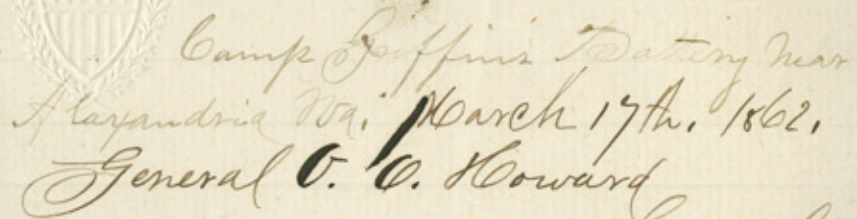 Camp Griffin's Battery near
Alaxandria Va. March 17th. 1862.
General O. O. Howard